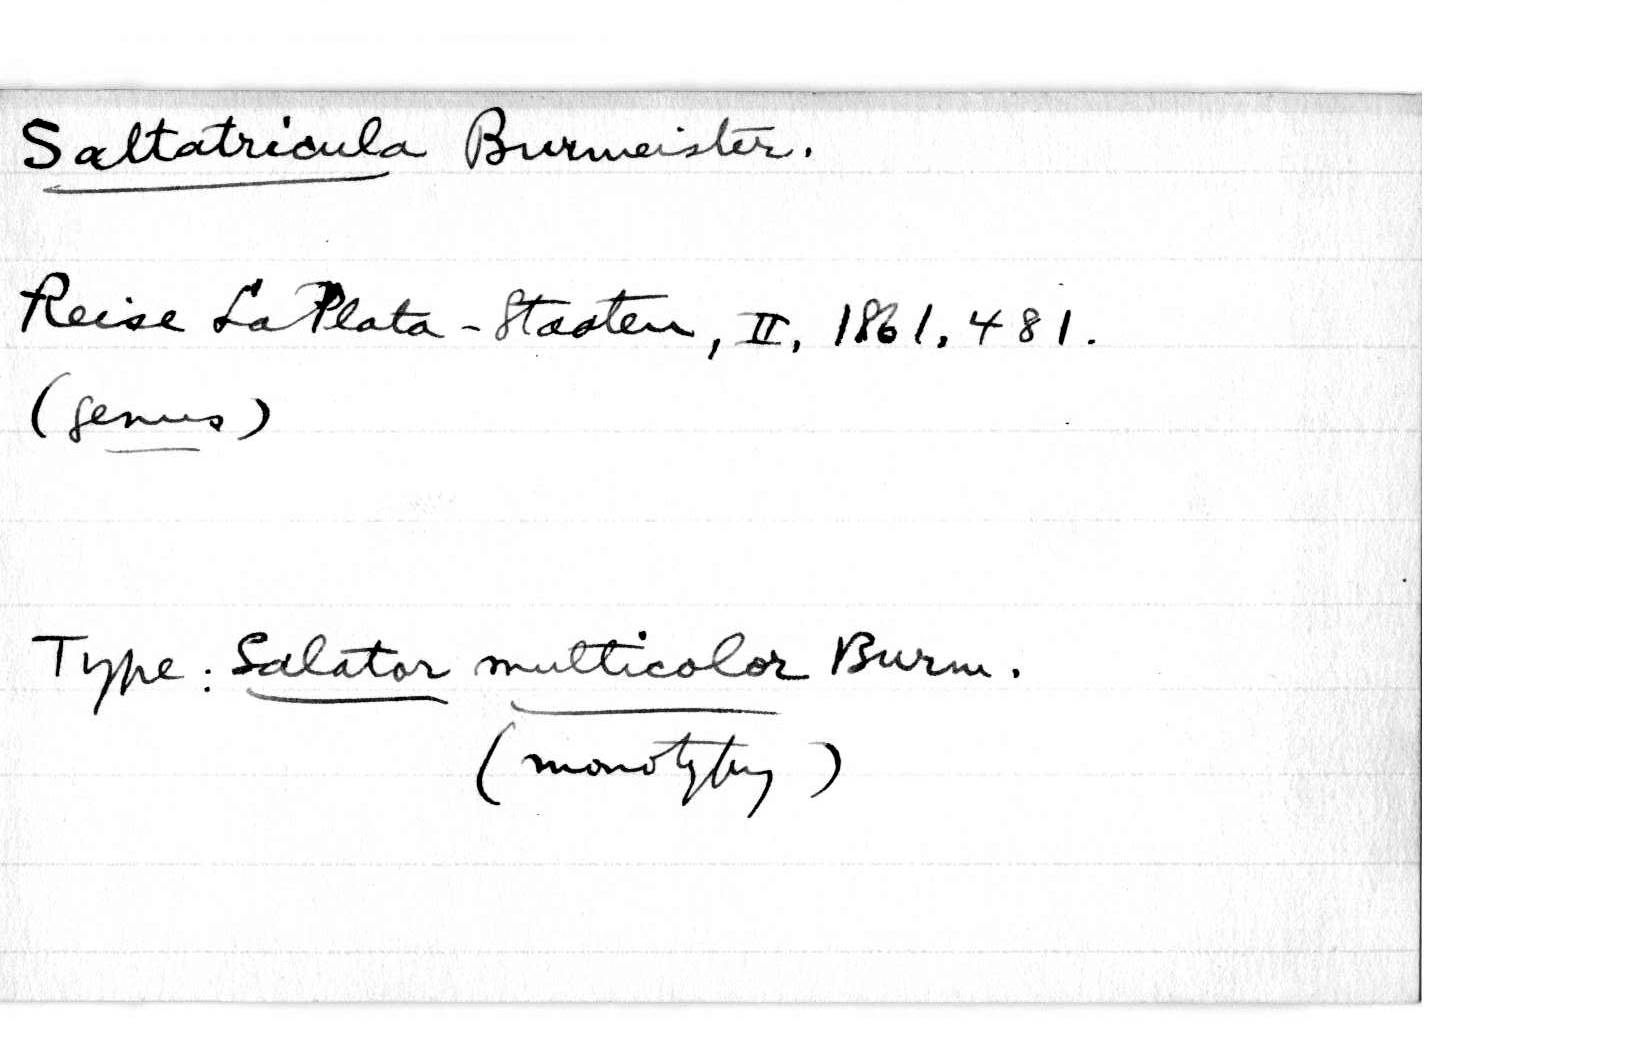 Saltatricula Burmeister.
Reise La Plata-Staaten, II, 1861, 481.
(genus)
Type: Salator multicolor Burm.
(monotypy)